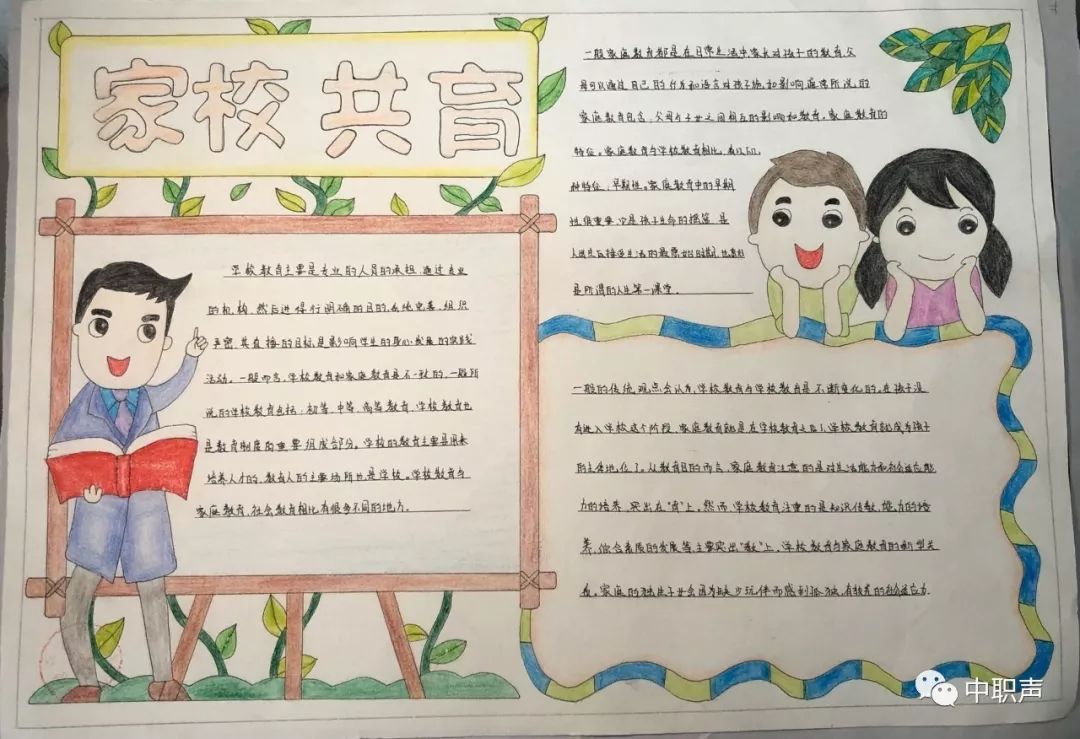 家校共育
学校教育主要是专业的人员的承担,通过专业
的机构,然后进行明确的目的,系统完善,组织
严密,其直接的目标是影响学生的身心发展的实践
活动。一般而言,学校教育和家庭教育是不一致的,一般所
说的学校教育包括:初等、中等、高等教育,学校教育也
是教育制度的重要组成部分。学校的教育主要是用来
培养人才的,教育人的主要场所也是学校。学校教育与
家庭教育,社会教育相比有很多不同的地方。
一般家庭教育都是在日常生活中,家长对孩子的教育,父
母可以通过自己的行为和语言对孩子施加影响,通常所说的
家庭教育包含:父母与子女之间相互的影响和教育,家庭教育的
特征。家庭教育与学校教育相比,有以下几
种特征:早期性。家庭教育中的早期
性很重要,它是孩子生命的摇篮,是
是所谓的人生第一课堂。
一般的传统观点会认为,学校教育与学校教育是不断变化的,在孩子没
有进入学校这个阶段,家庭教育就是在学校教育
的主体地位了。从教育目的而言,家庭教育注意的是对生活能力和社会适应能
力的培养,突出在"育"上,然而学校教育注重的是知识传教,能力的培
养,综合素质的发展等主要突出"教"上,学校教育与家庭教育的新型关
看,家庭的独生子女会因为缺少玩伴而感到孤独,有较差的社会适应力.
中职声